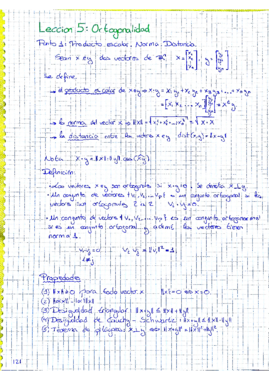 Leccion 5: Ortogonalidad
Punto 1: Producto escalar. Norma. Distancia.
Sean x e y dos vectores de ℝⁿ x = [x₁ x₂ ⋮ xₙ], y = [y₁ ⋮ yₙ]
Se define.
→ el producto escalar de x e y → x·y = x₁y₁ + x₂y₂ + x₃y₃ + ... + xₙyₙ
→ la norma del vector x
→ la distancia entre los vectores x e y dist(x,y) = ||x-y||
Nota: x·y = ||x||·||y|| cos(x,y)
Definición
• Los vectores x e y son ortogonales si x·y = 0, se denota x⊥y.
• Un conjunto de vectores {v₁, v₂, ... vₚ} es un conjunto ortogonal si los
vectores son ortogonales 2 a 2 vᵢ·vⱼ = 0
• Un conjunto de vectores {v₁, v₂, ... vₚ} es un conjunto ortogonormal
si es un conjunto ortogonal y además los vectores tienen
norma 1.
vᵢ·vⱼ = 0 vᵢ·vᵢ = ||vᵢ||² = 1
i≠j
Propiedades
(1) ||x|| ≥ 0 para todo vector x ||x|| = 0 ⇔ x = 0
(3) Desigualdad triangular: ||x+y|| ≤ ||x|| + ||y||
(4) Desigualdad de Cauchy-Schwartz:
(5) Teorema de pitágoras x⊥y ⇔ ||x+y||² = ||x||² + ||y||²